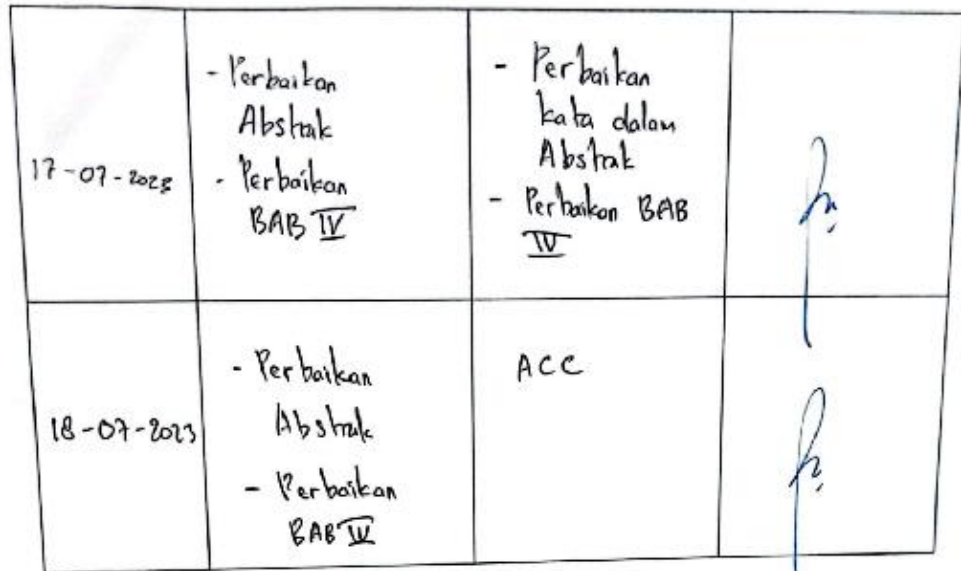 17-07-2023
- Perbaikan
Abstrak
- Perbaikan
BAB IV
- Perbaikan
kata dalam
Abstrak
- Perbaikan BAB
IV
18-07-2023
- Perbaikan
Abstrak
- Perbaikan
BAB IV
ACC